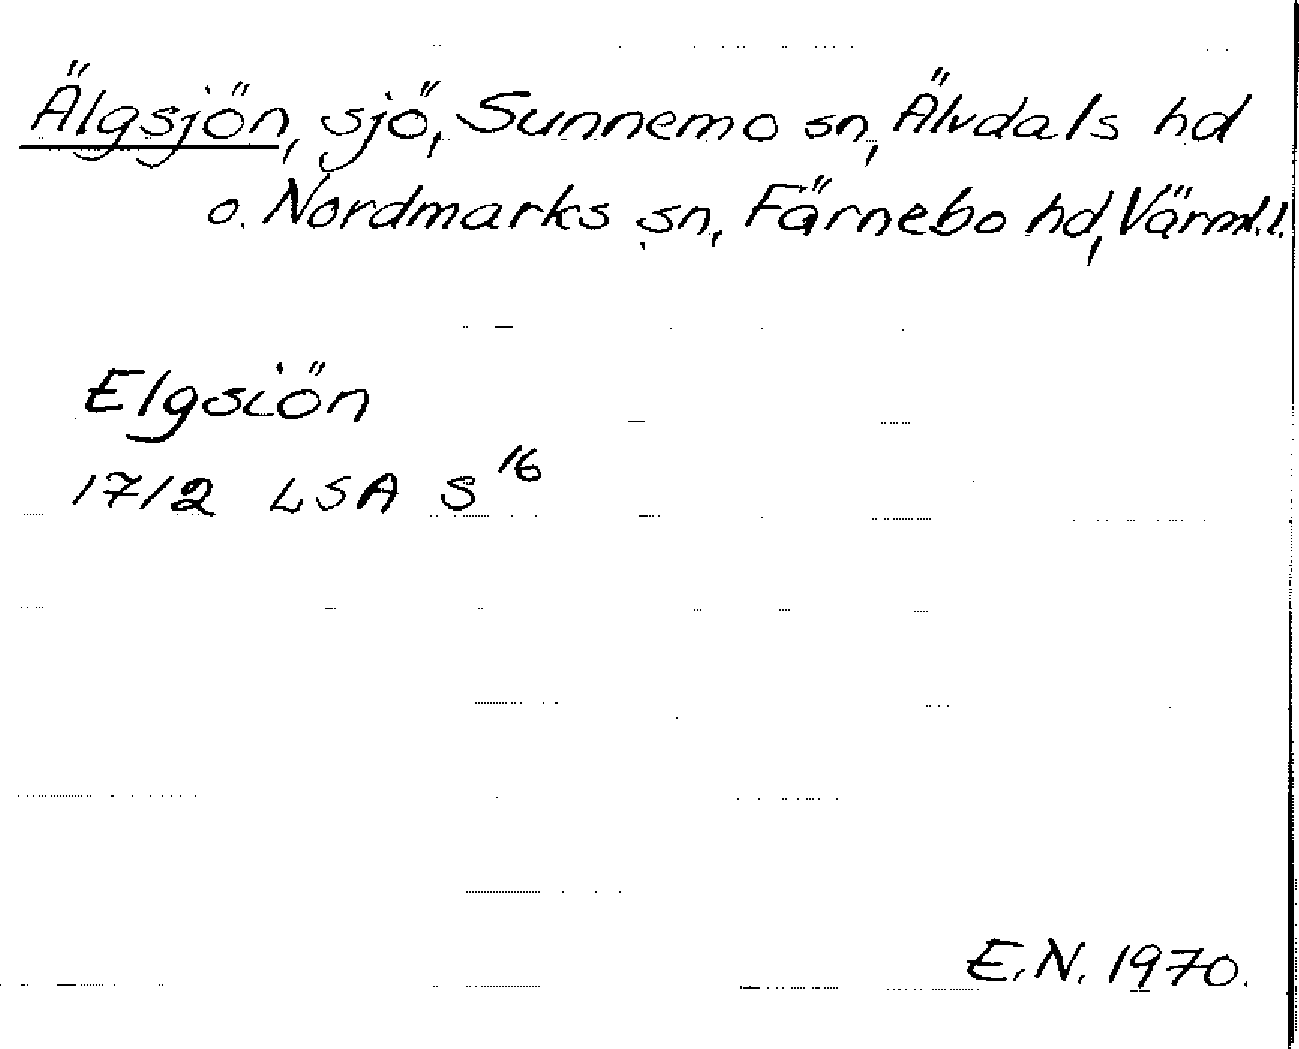 Älgsjön, sjö, Sunnemo sn, Älvdals hd
o. Nordmarks sn, Färnebo hd, Värml.l.
Elgsiön
1712 LSA S 16
E.N. 1970.